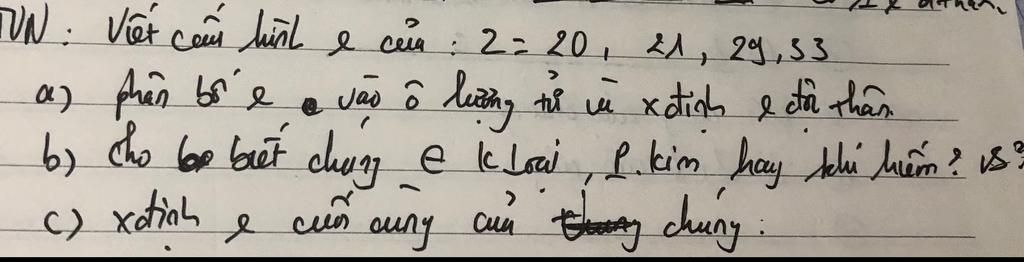 TVN: Viết cấu hình e của: Z = 20, 21, 29, 33
a) phân bố e vào ô lượng tử và xđịnh e độc thân
b) cho biết chúng ∈ k loại, p. kim hay khí hiếm? vs?
c) xđịnh e cuối cùng của chúng: